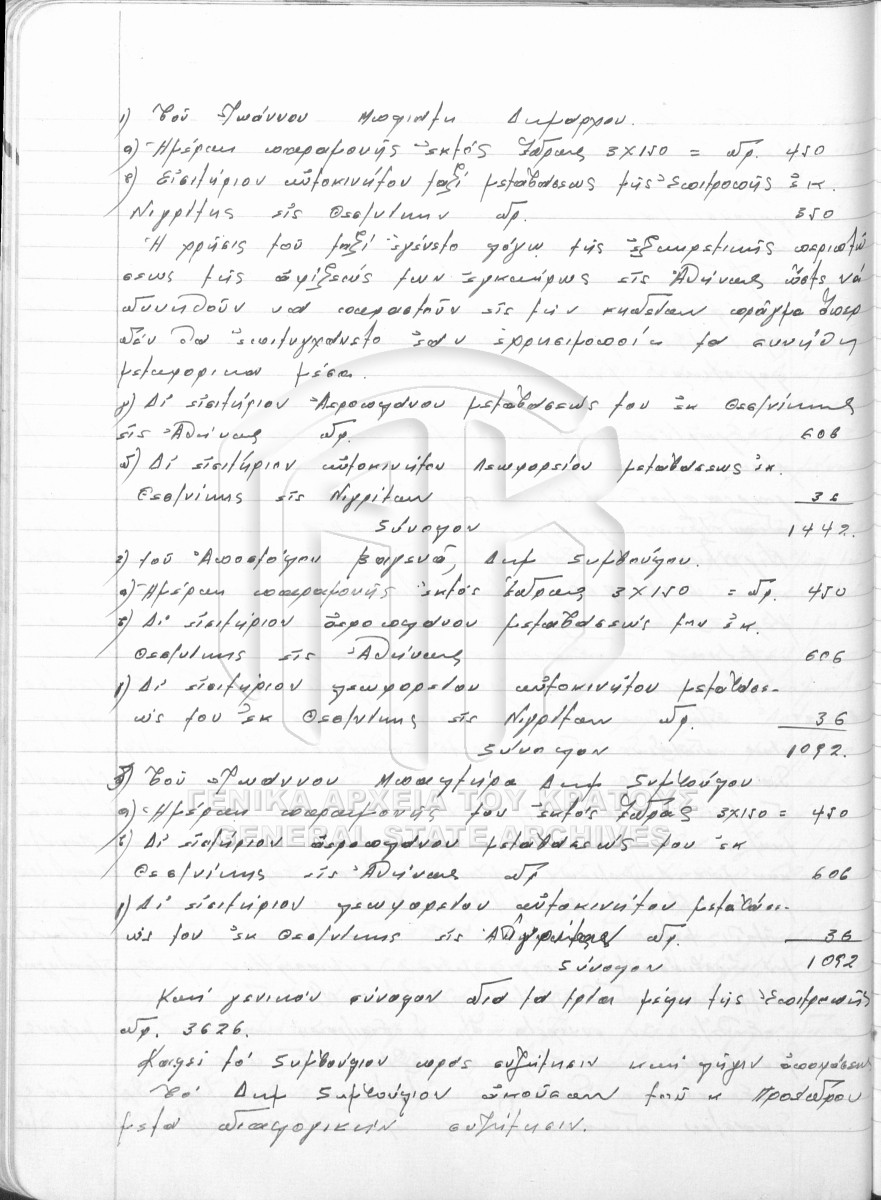 1) Τοῦ Ἰωάννου Δημάρχου.
α) Ἡμέραι παραμονῆς ἐκτός ἕδρας 3Χ150 = δρ. 450
β) Εἰσιτήριον αὐτοκινήτου ταξί μεταβάσεως τῆς Ἐπιτροπῆς ἐκ.
Νιγρίτης εἰς Θεσ/νίκην δρ. 350
Ἡ χρῆσις τοῦ ταξί ἐγένετο λόγῳ τῆς ἐξαιρετικῆς περιπτώ
σεως τῆς ἀφίξεώς των ἐγκαίρως εἰς Ἀθήνας ὥστε νά
δυνηθοῦν να παραστοῦν εἰς την κηδείαν πρᾶγμα ὅπερ
δέν θα ἐπιτυγχάνετο ἐαν ἐχρησιμοποίει τα συνήθη
μεταφορικα μέσα.
γ) Δι' εἰσιτήριον Ἀεροπλάνου μεταβάσεώς του ἐκ Θεσ/νίκης
εἰς Ἀθήνας δρ. 606
δ) Δι' εἰσιτήριον αὐτοκινήτου Λεωφορείου μεταβάσεως ἐκ.
Θεσ/νίκης εἰς Νιγρίταν 36
Σύνολον 1442.
2) τοῦ Ἀποστόλου Δημ Συμβούλου.
α) Ἡμέραι παραμονῆς ἐκτός ἕδρας 3Χ150 = δρ. 450
β) Δι' εἰσιτήριον ἀεροπλάνου μεταβάσεώς του ἐκ.
Θεσ/νίκης εἰς Ἀθήνας 606
γ) Δι' εἰσιτήριον λεωφορείου αὐτοκινήτου μεταβάσε-
ώς του ἐκ Θεσ/νίκης εἰς Νιγρίταν δρ. 36
Σύνολον 1092.
3) Τοῦ Ἰωάννου Μπαλτήρα Δημ Συμβούλου
ΓΕΝΙΚΑ ΑΡΧΕΙΑ ΤΟΥ ΚΡΑΤΟΥΣ
α) Ἡμέραι παραμονῆς του ἐκτός ἕδρας 3Χ150 = 450
GENERAL STATE ARCHIVES
β) Δι' εἰσιτήριον ἀεροπλάνου μεταβάσεώς του ἐκ
Θεσ/νίκης εἰς Ἀθήνας δρ 606
γ) Δι' εἰσιτήριον λεωφορείου αὐτοκινήτου μεταβάσε-
ώς του ἐκ Θεσ/νίκης εἰς δρ. 36
Σύνολον 1092
Καί γενικόν σύνολον δια τα τρία μέλη τῆς Ἐπιτροπῆς
δρ. 3626.
Καλεῖ τό Συμβούλιον πρός συζήτησιν καί λῆψιν ἀποφάσεως
Τό Δημ Συμβούλιον ἀκοῦσαν τοῦ κ Προέδρου
μετά διαλογικήν συζήτησιν.